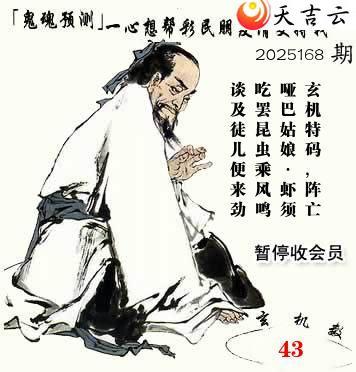 「鬼魂预测」一心想帮彩民朋友
天吉云
2025168 期
玄机特码，阵亡
哑巴姑娘·虾须
吃罢昆虫乘风鸣
谈及徒儿便来劲
暂停收会员
玄机
43